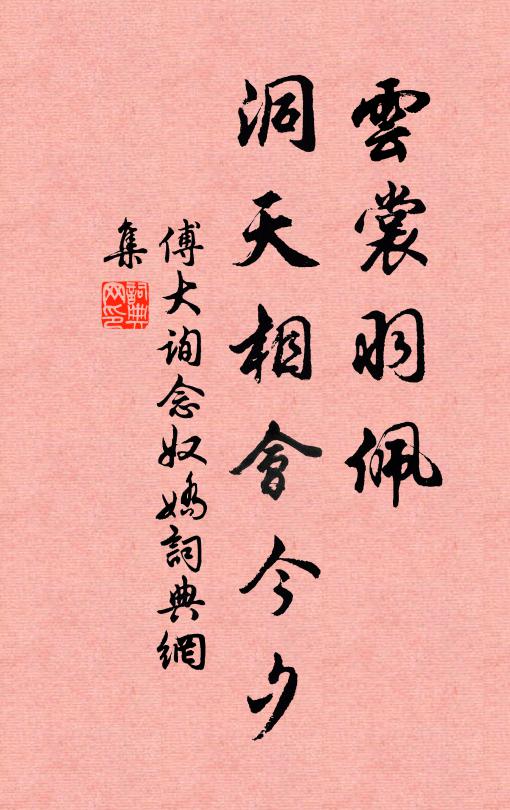 雲裳羽佩
洞天相會今夕
傅大詢念奴嬌詞典網
集
詞典
网印